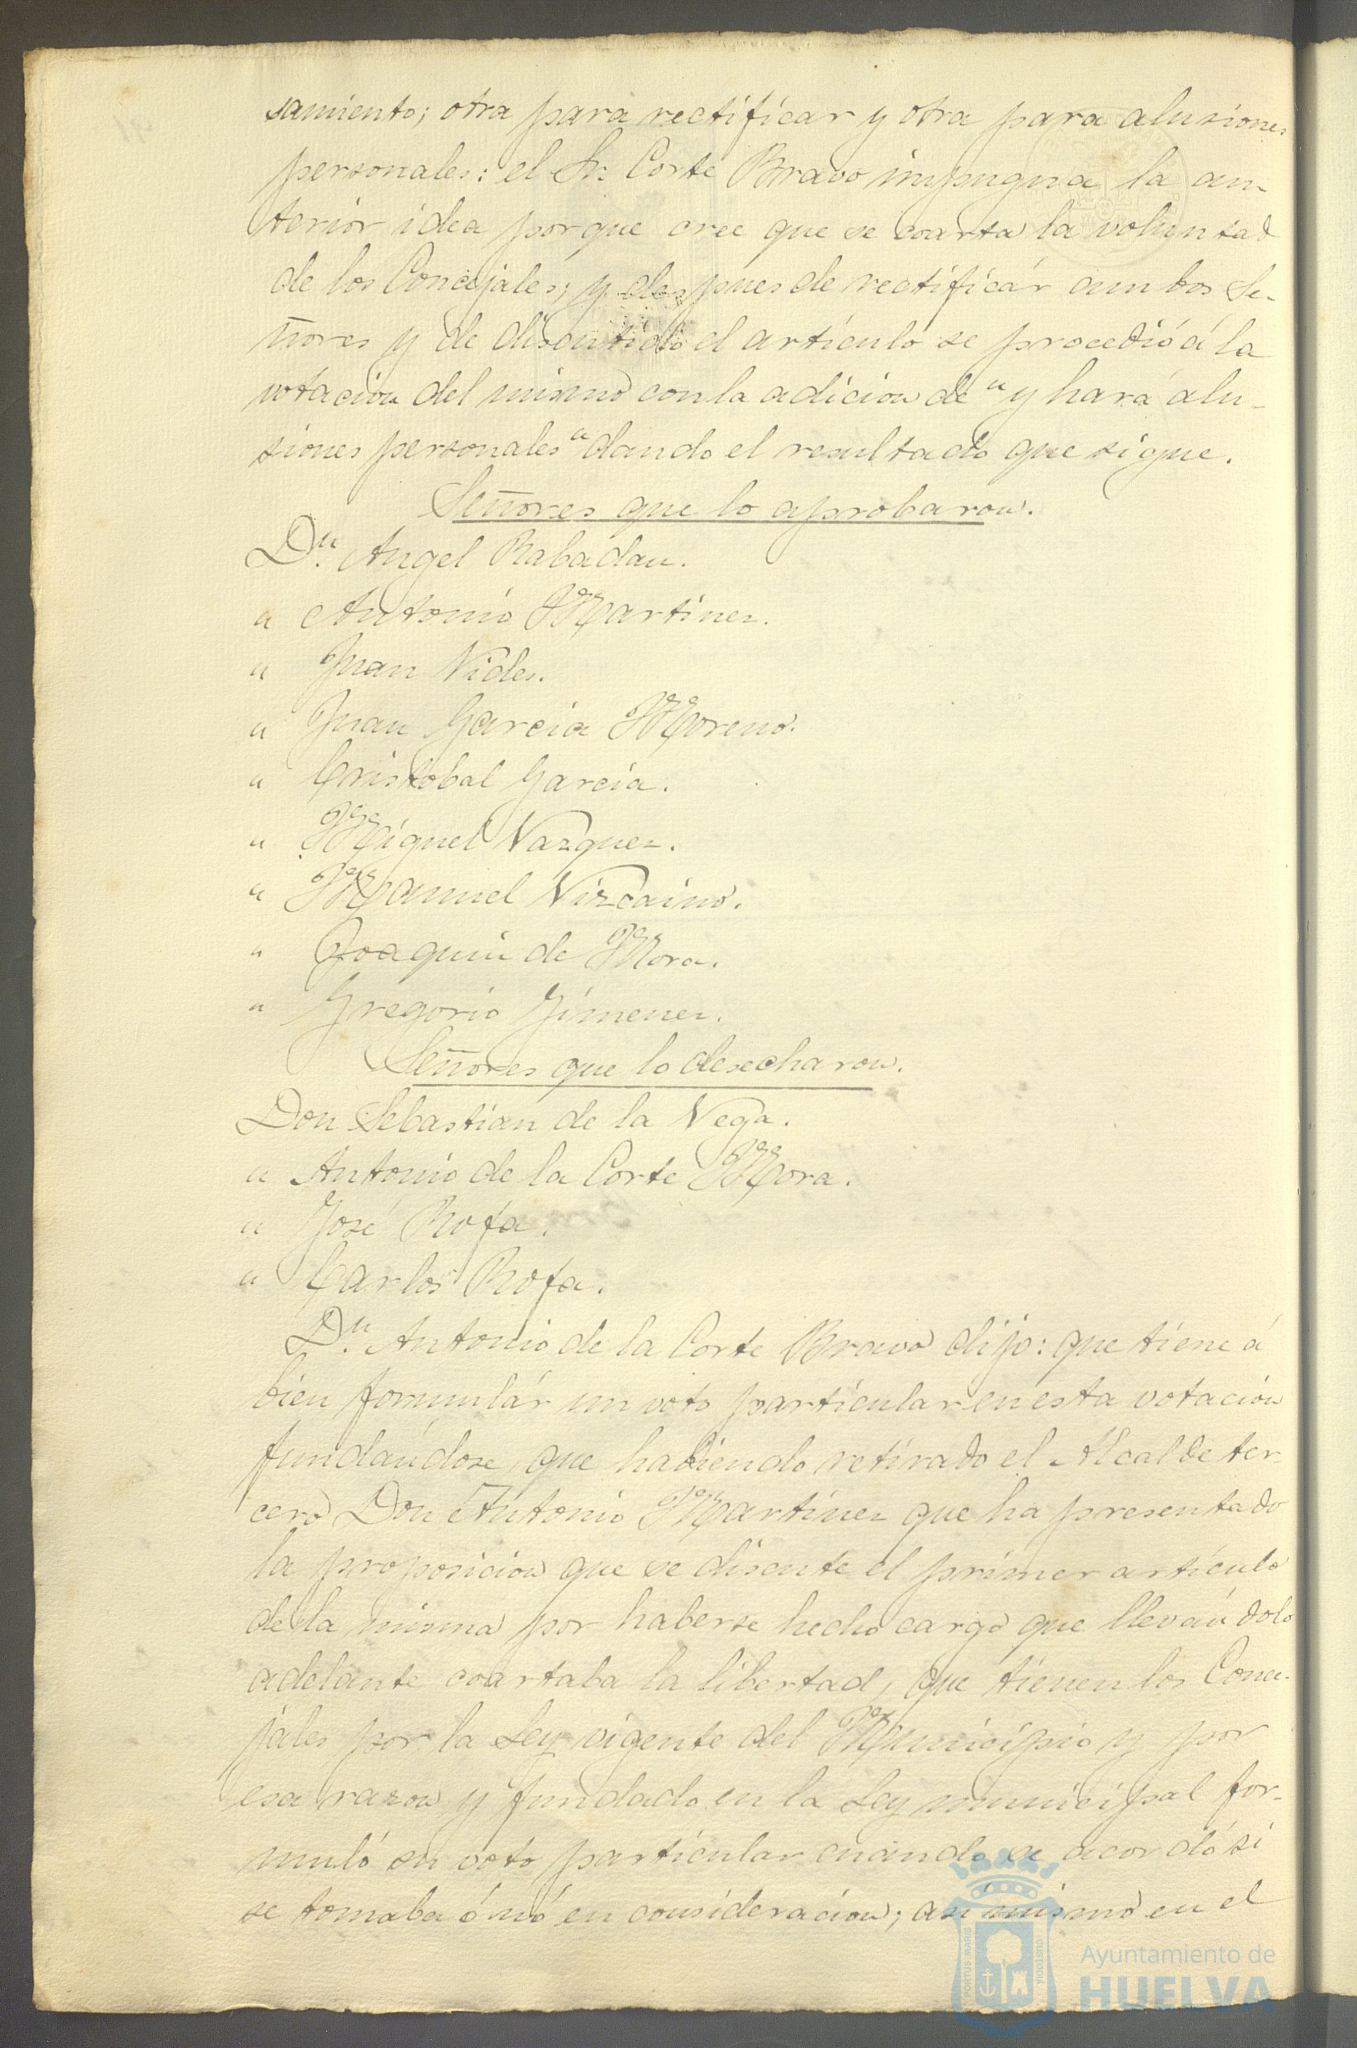 samiento; otra para rectificar y otra para alusiones
personales: el Sr. Corte Bravo impugna la an-
terior idea porque cree que se coarta la voluntad
de los Concejales; y despues de rectificár ambos Se-
ñores y de discutido el artículo se procedió á la
votacion del mismo con la adicion de " y hará alu-
siones personales " dando el resultado que sigue.
Señores que lo aprobaron.
Dn. Angel Rabadan.
" Antonio Martinez.
" Juan Vides.
" Juan Garcia Moreno.
" Cristobal Garcia.
" Miguel Vazquez.
" Manuel Vizcaino.
" Joaquin de Mora.
" Gregorio Jimenez.
Señores que lo desecharon.
Don Sebastian de la Vega.
" Antonio de la Corte Mora.
" José Rofa.
" Carlos Rofa.
Dn. Antonio de la Corte Bravo dijo: que tiene á
bien formulár un voto particular en esta votación
fundándose, que habiendo retirado el Alcalde ter-
cero Don Antonio Martinez que ha presentado
la proposicion que se discute el primer artículo
de la misma por haberse hecho cargo que llevándolo
adelante coartaba la libertad, que tienen los Conce-
jales por la Ley vigente del Municipio y por
esa razon y fundado en la Ley municipal for-
muló su voto particular cuando se acordó si
se tomaba ó nó en consideracion; asi mismo en el
PORTUS MARIS
CUSTODIA
Ayuntamiento de
HUELVA